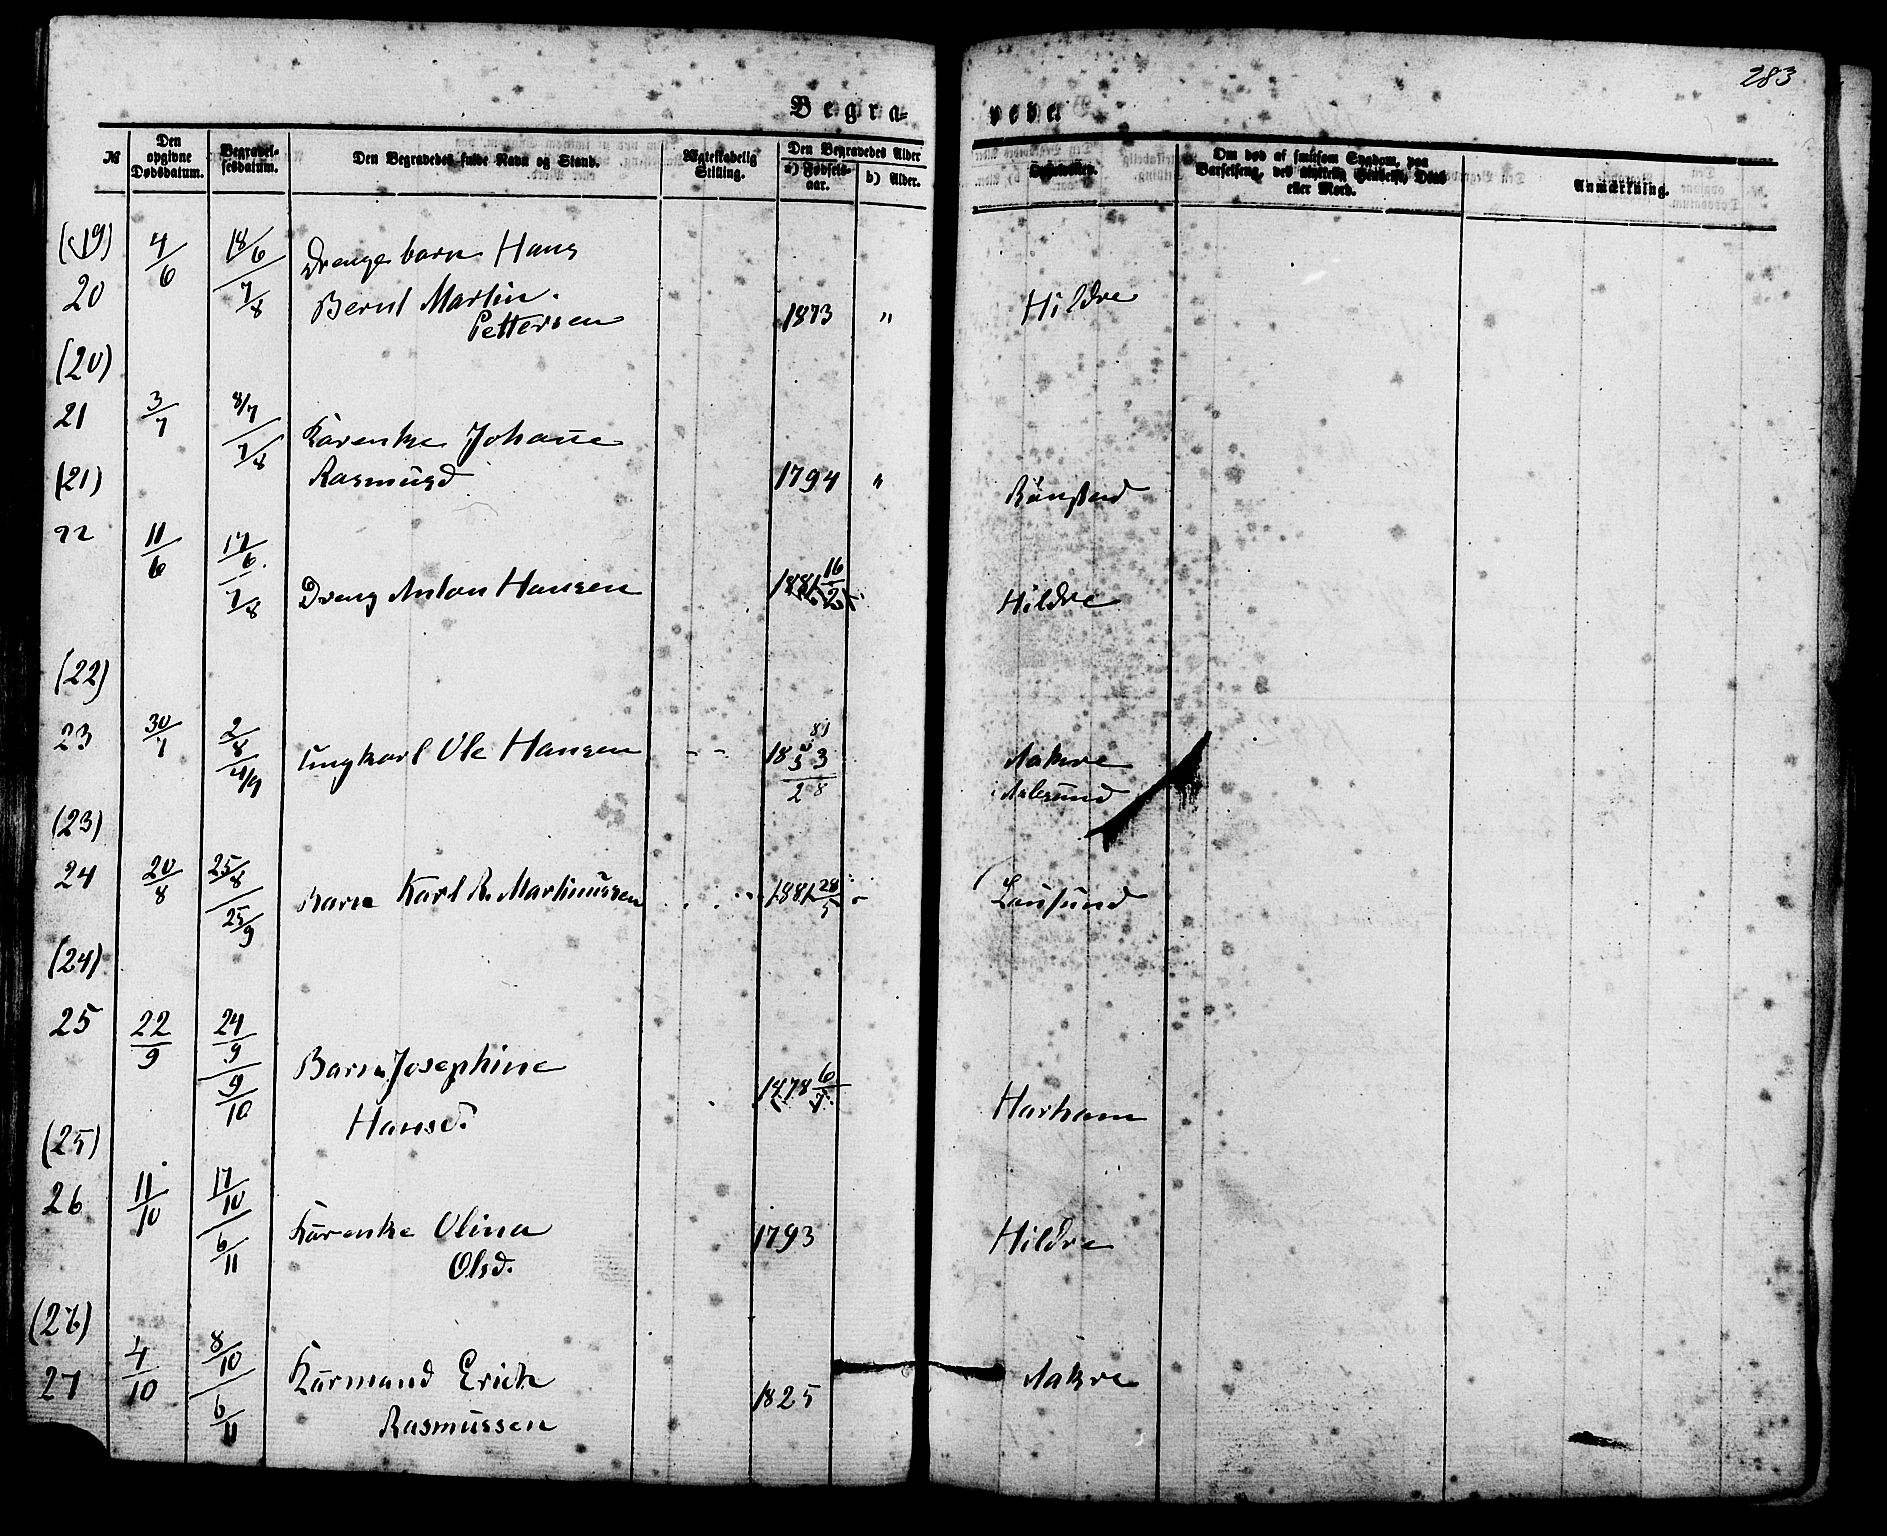 283
Begra-
vede
№
Den opgivne Dødsdatum.
Begravel-sesdatum.
Den Begravedes fulde Navn og Stand.
Den Begravedes Alder
a) Fødsels-aar.
b) Alder.
Stilling.
Om død af smitsom Sygdom, paa
Barselseng, ved ulykkelig Hændelse, Drab
eller Mord.
Anmærkning.
(19) 4/6 18/6 Drengebarn Hans
20 7/8 Bernt Martin
Pettersen 1873 " Hildre
(20)
21 3/7 8/7 7/8 Kårenke Johanne
(21) Rasmusd 1794 "
22 11/6 17/6 7/8 Dreng Anton Hansen 1881 16/2 Hildre
(22)
23 30/7 2/8 4/9 Ungkarl Ole Hansen - - 1853 Aakre
81
28
(23)
24 20/8 25/8 25/9 Barn Karl R. Martinussen 1881 28/5 Lausund
(24)
25 22/9 24/9 9/10 Barn Josephine
Hansd. 1878 6/7 Harham
(25)
26 11/10 17/10 6/11 Kårenke Olina
Olsd. 1793 Hildre
(26)
27 4/10 8/10 6/11 Kårmand Erick
Rasmussen 1825 Aakre